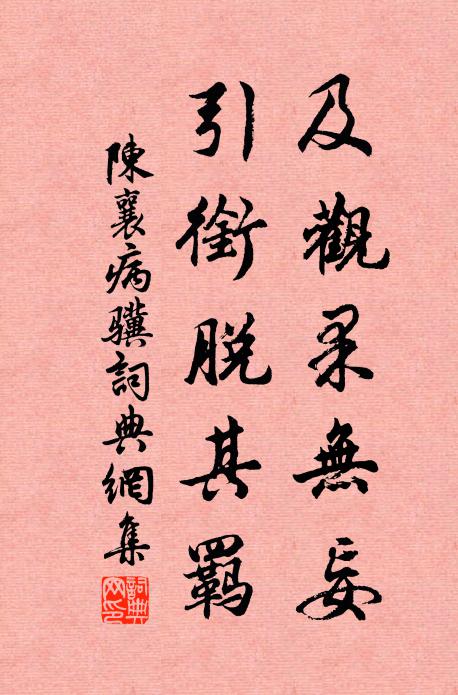 及觀果無妄
引銜脫其羈
陳襄病驥詞典網集
詞典網印